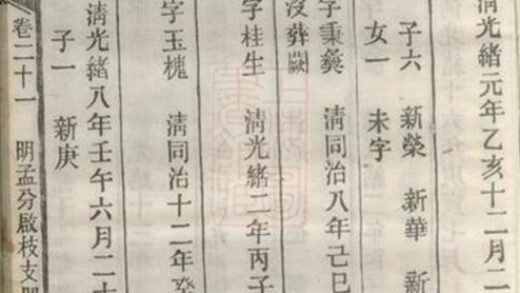 清光緒元年乙亥十二月二
子六 新榮 新華 新
女一 未字
字秉彝 清同治八年己巳
沒葬闕
字桂生 清光緒二年丙子
字玉槐 清同治十二年癸
清光緒八年壬午六月二十
子一 新庚
卷二十一 明孟分啟枝支